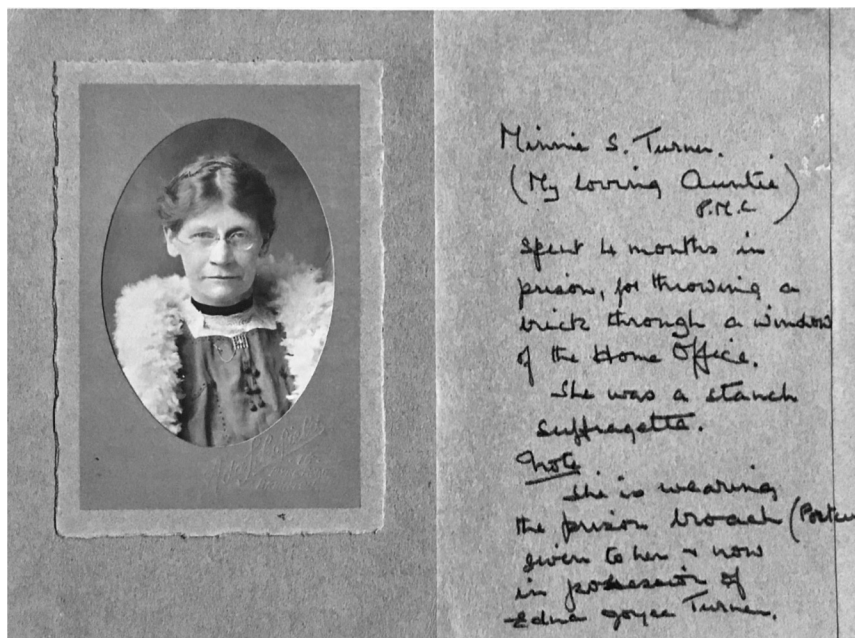 Minnie S. Turner.
(My loving Auntie)
P.M.C
Spent 4 months in
prison, for throwing a
brick through a window
of the Home Office.
She was a stanch
Suffragette.
Note
She is wearing
the prison broach (Portcu
given to her & now
in possession of
Edna Joyce Turner.